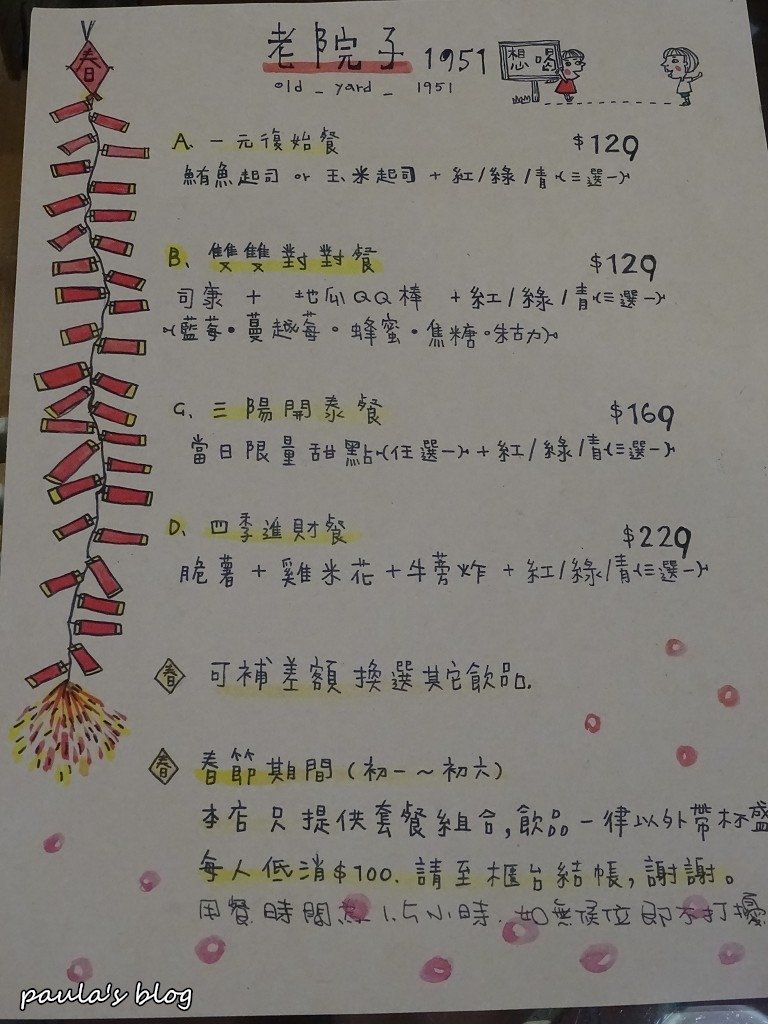 老院子 1951
old _ yard _ 1951
想喝
春
A. 一元復始餐 $129
鮪魚起司 or 玉米起司 + 紅/綠/青(三選一)
B. 雙雙對對餐 $129
司康 + 地瓜QQ棒 + 紅/綠/青(三選一)
(藍莓。蔓越莓。蜂蜜。焦糖。朱古力)
C. 三陽開泰餐 $169
當日限量甜點(任選一) + 紅/綠/青(三選一)
D. 四季進財餐 $229
脆薯 + 雞米花 + 牛蒡炸 + 紅/綠/青(三選一)
春 可補差額換選其它飲品.
春 春節期間(初一~初六)
本店只提供套餐組合,飲品一律以外帶杯盛
每人低消$100. 請至櫃台結帳,謝謝。
用餐時間為1.5小時. 如無候位即不打擾
paula's blog